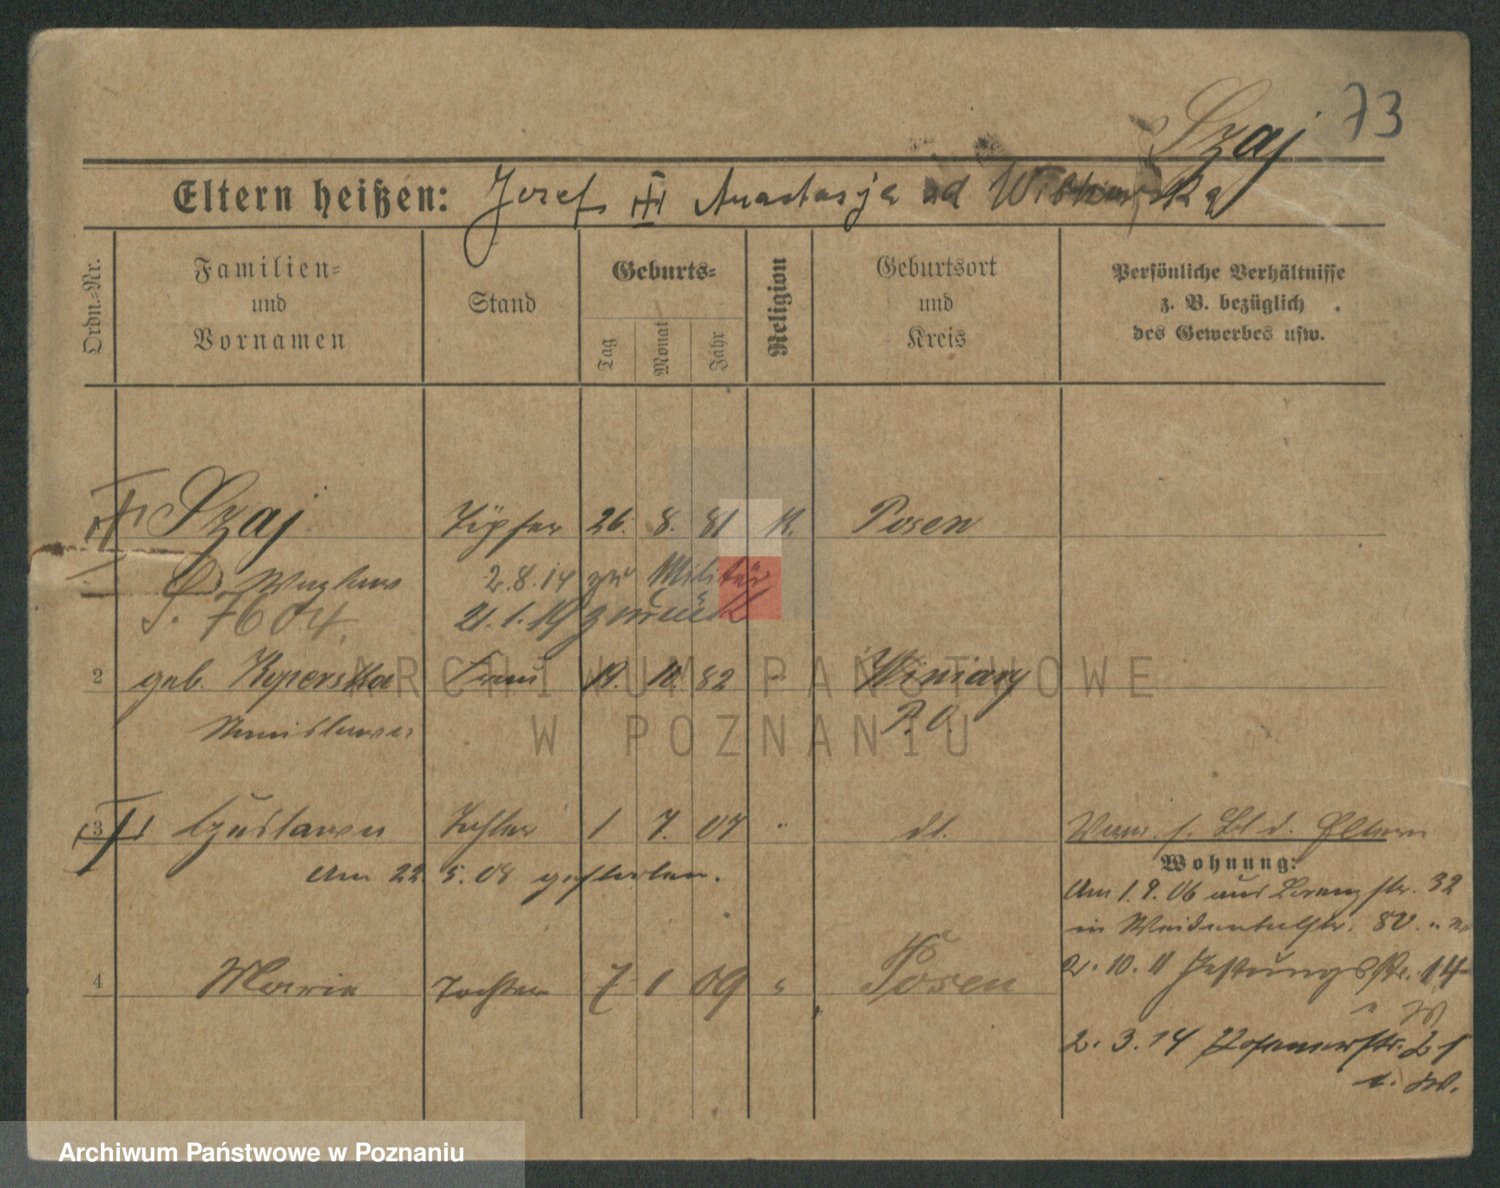 Szaj 73
Eltern heißen: Jozef Anastasja
Ordn.-Nr.
Familien-
und
Vornamen
Stand
Geburts-
Tag
Monat
Jahr
Religion
Geburtsort
und
Kreis
Persönliche Verhältnisse
z. B. bezüglich
des Gewerbes usw.
Szaj Töpfer 26. 8. 81 K. Posen
2.8.14 zur Militär
S. 7604. 21.1.19 zurück
2 geb. Koperska Frau 19. 10. 82 " Winiary
Stanislawa P. O.
3 Tochter 1 7. 07 " dt.
Am 22. 5. 08 gestorben.
Wohnung:
Am 1. 9. 06 aus Lorenzstr. 32
in
4 Maria Tochter 7 1 09 " Posen
2. 10. 11 Festungsstr. 14
2. 3. 14 Posenerstr.
ARCHIWUM PAŃSTWOWE
W POZNANIU
Archiwum Państwowe w Poznaniu